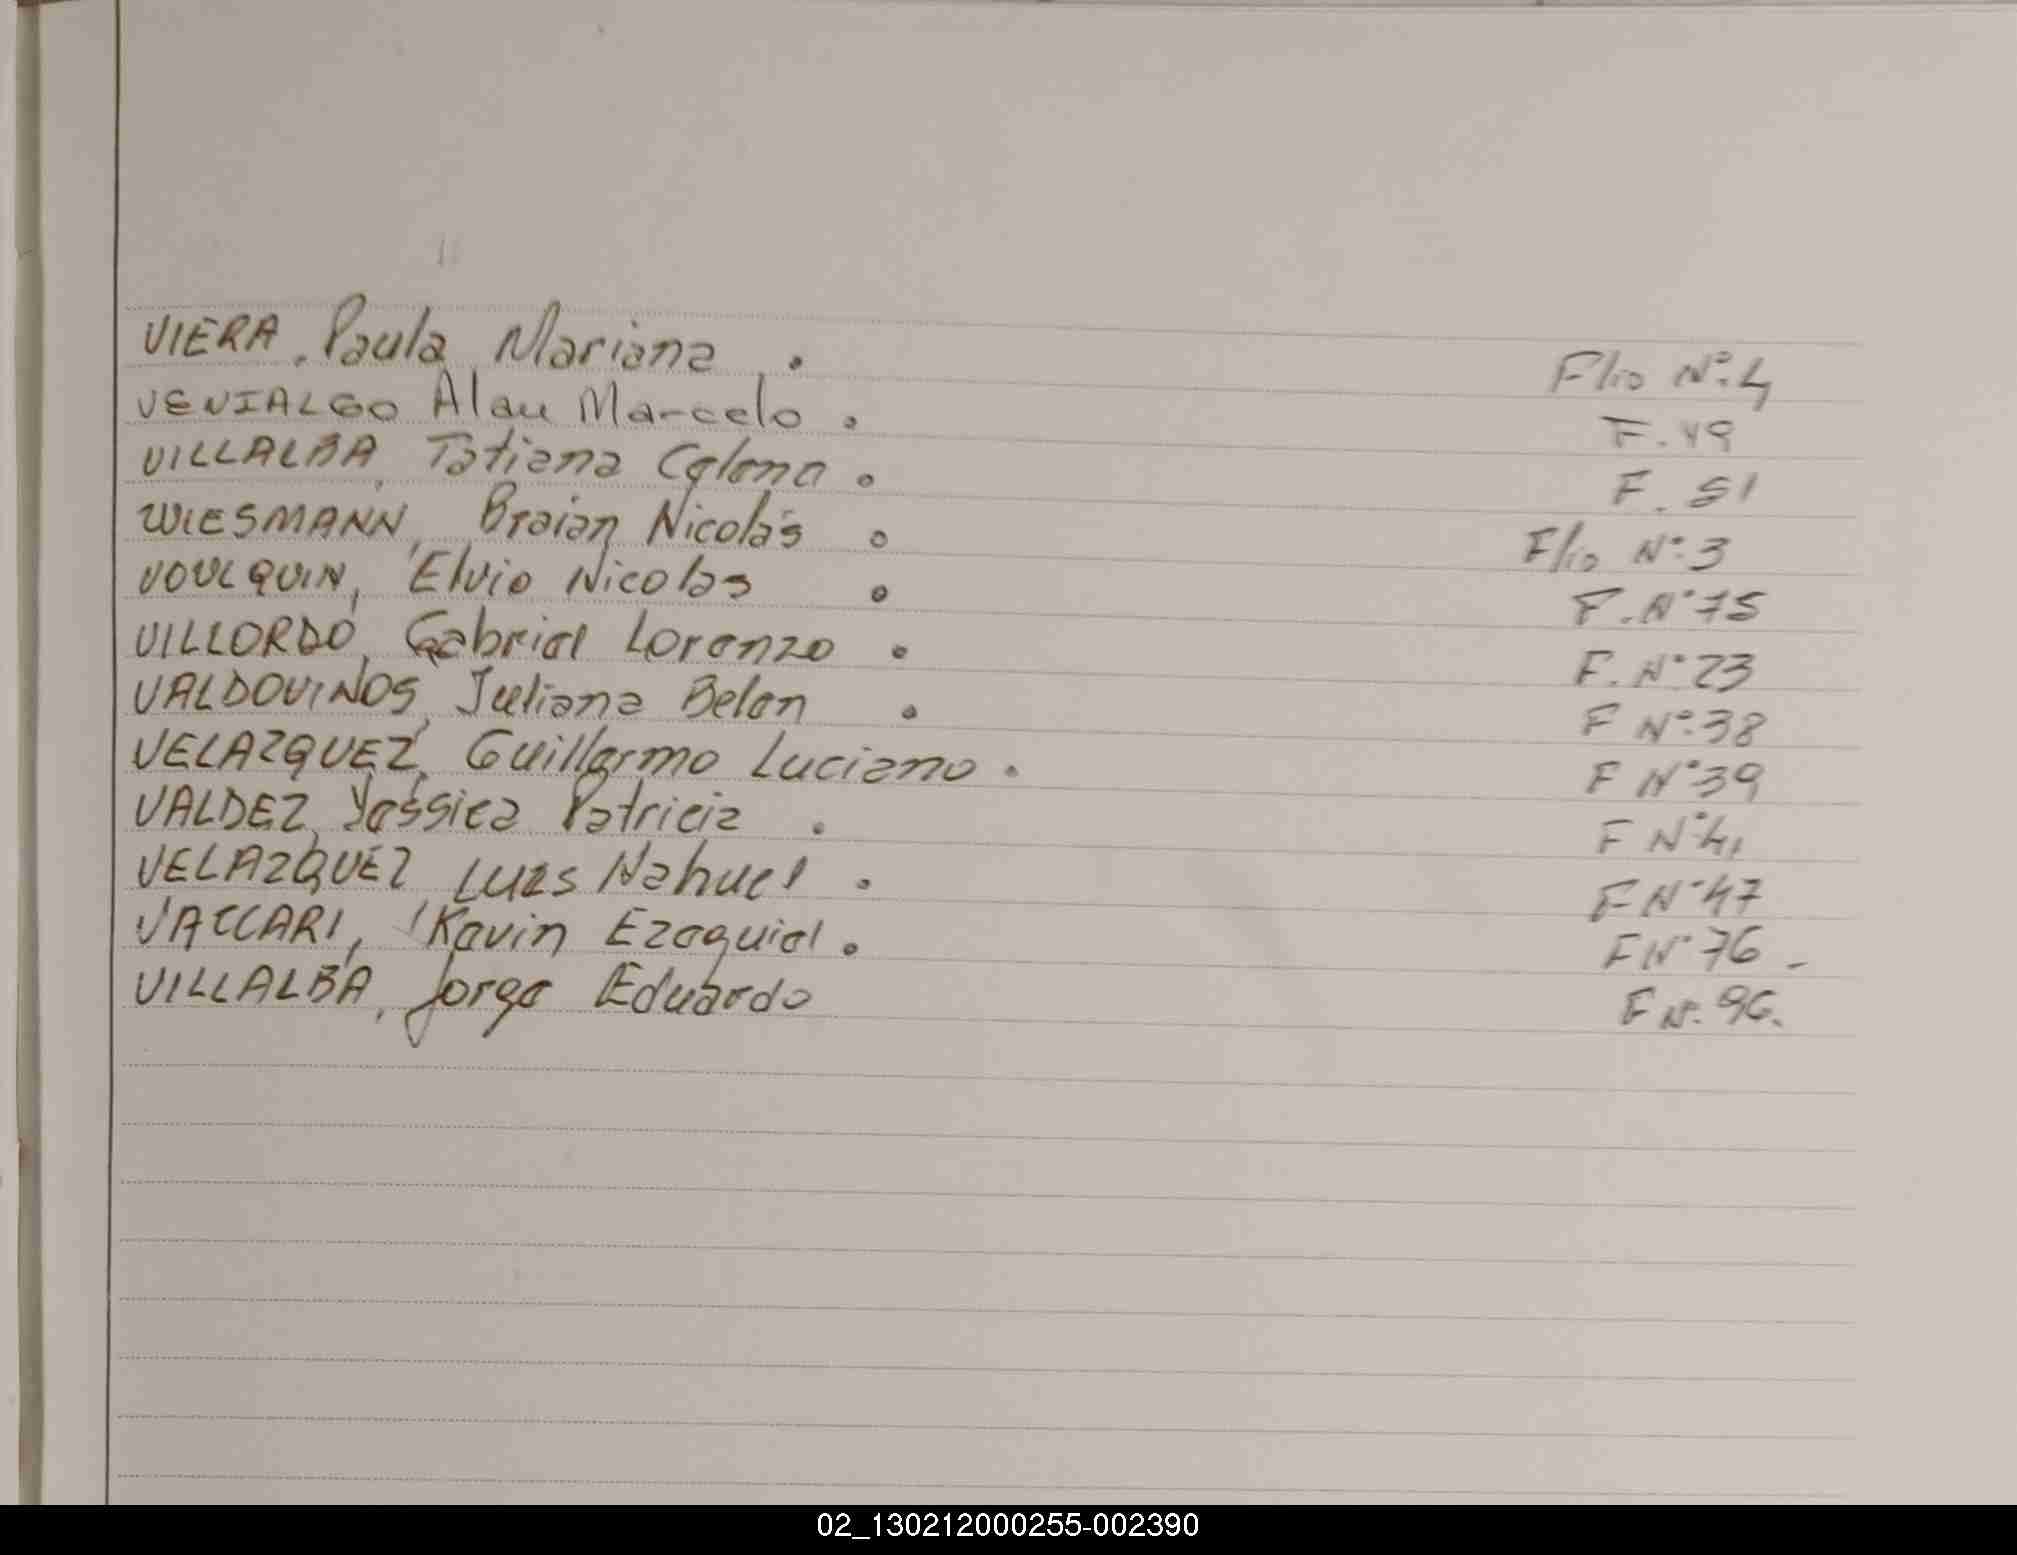 VIERA, Paula Mariana . Flio Nº:4
VENIALGO Alan Marcelo . F. 49
VILLALBA, Tatiana Celena . F. 51
WIESMANN, Braian Nicolás . Flio Nº:3
VOULQUIN, Elvio Nicolas . F. Nº 75
VILLORDO, Gabriel Lorenzo . F. Nº 23
VALDOVINOS, Juliana Belen . F Nº:38
VELAZQUEZ, Guillermo Luciano . F Nº 39
VALDEZ, Yessica Patricia . F Nº 41
VELAZQUEZ Luis Nahuel . F Nº 47
VACCARI, Kevin Ezequiel . F Nº 76 -
VILLALBA, Jorge Eduardo F Nº. 96.
02_130212000255-002390